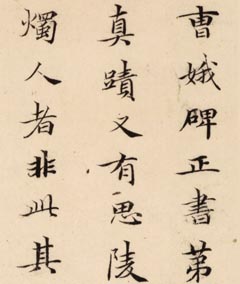 曹娥碑正書第
真蹟又有思陵
燭人者非此其